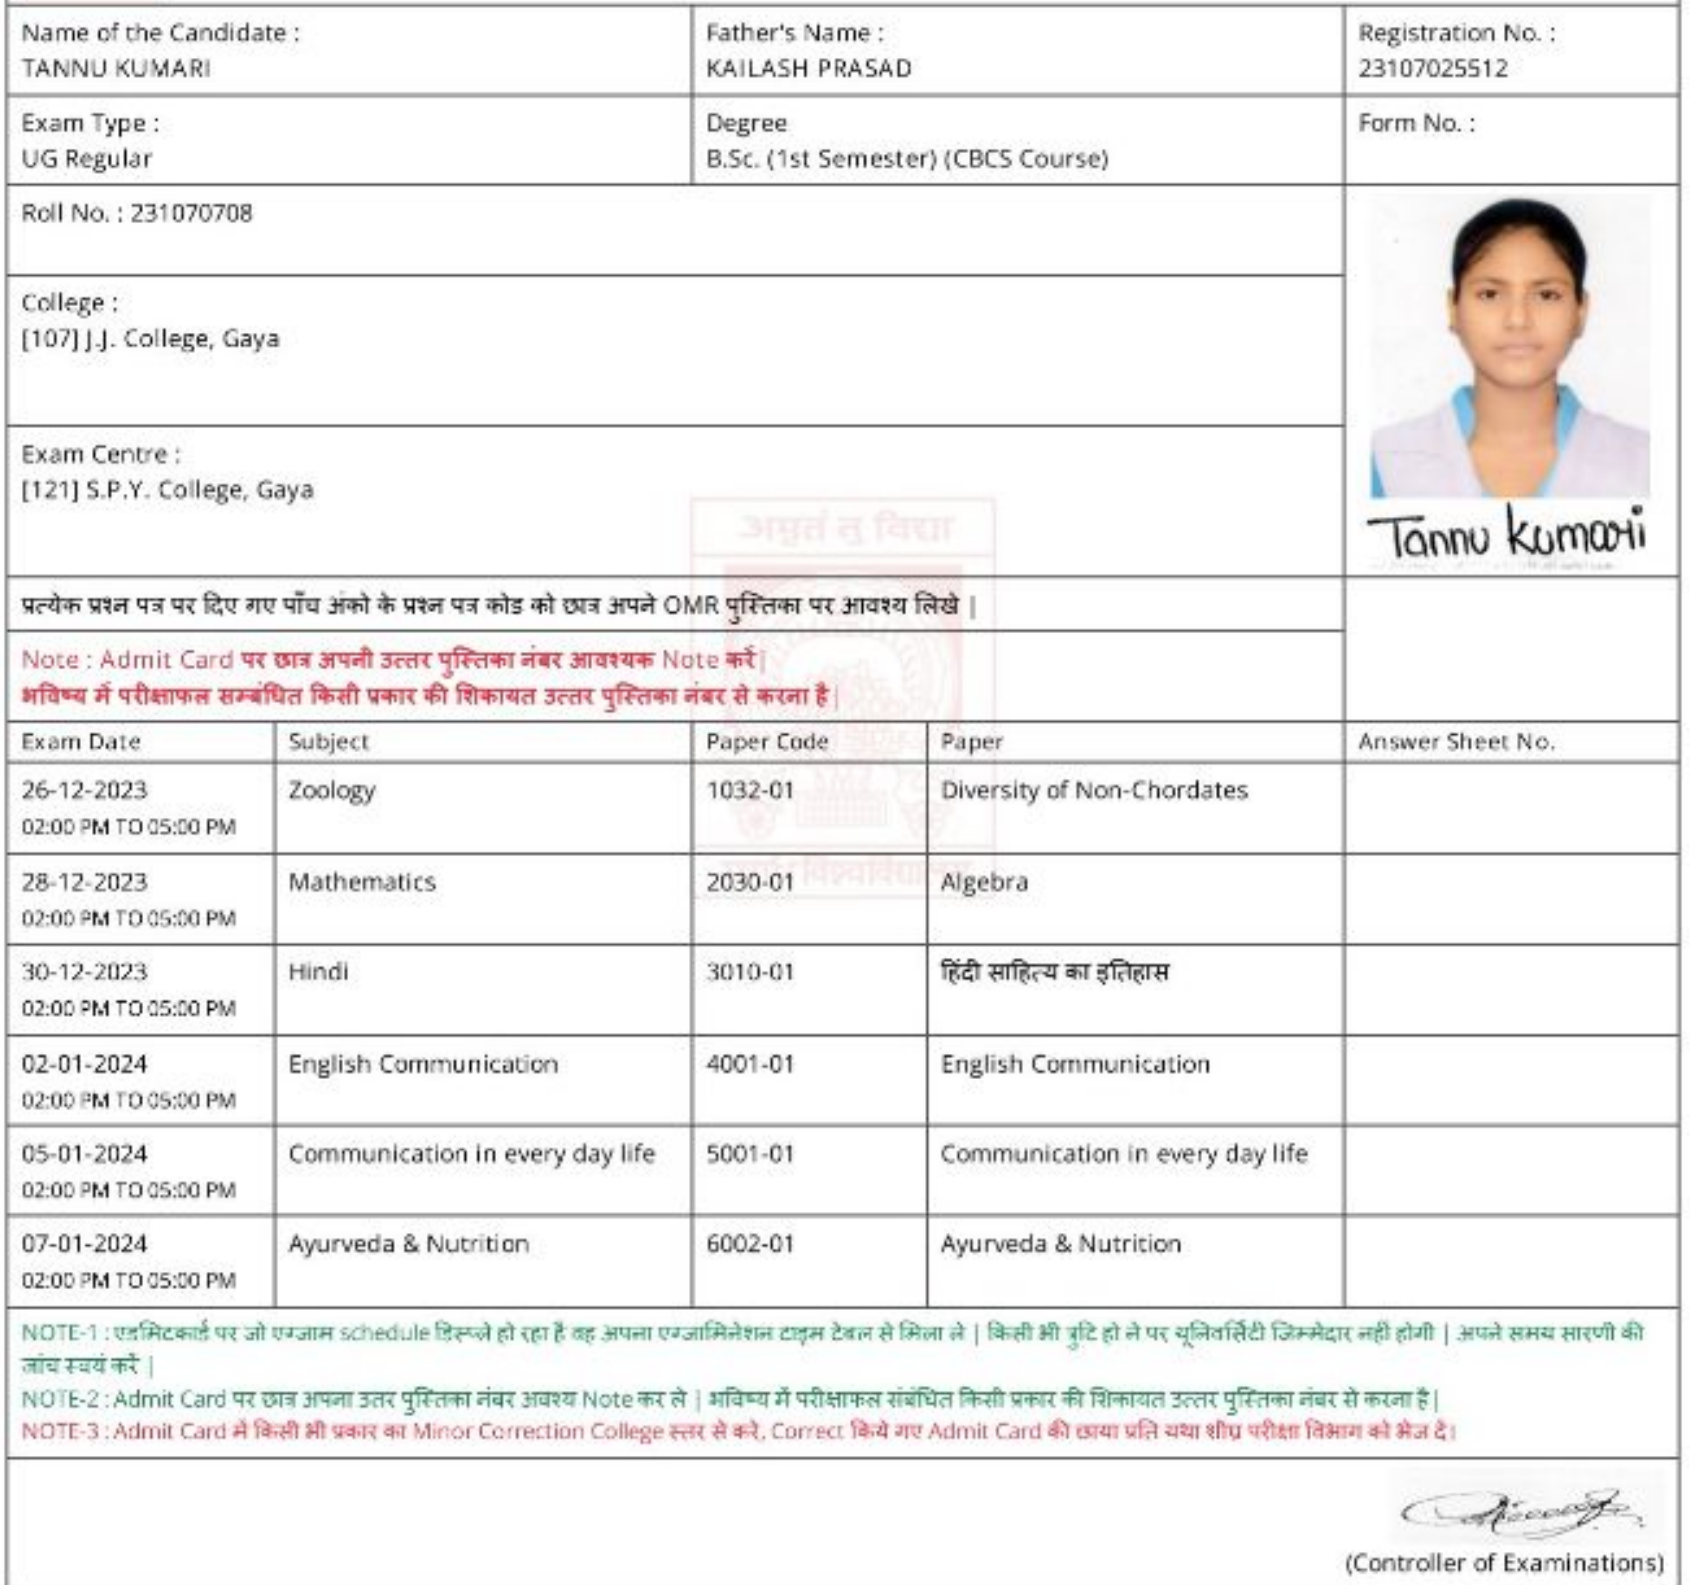 Name of the Candidate :
TANNU KUMARI
Father's Name :
KAILASH PRASAD
Registration No. :
23107025512
Exam Type :
UG Regular
Degree
B.Sc. (1st Semester) (CBCS Course)
Form No. :
Roll No. : 231070708
College :
[107] J.J. College, Gaya
Exam Centre :
[121] S.P.Y. College, Gaya
Tannu Kumari
अमृतं तु विद्या
प्रत्येक प्रश्न पत्र पर दिए गए पाँच अंको के प्रश्न पत्र कोड को छात्र अपने OMR पुस्तिका पर आवश्य लिखे |
Note : Admit Card पर छात्र अपनी उत्तर पुस्तिका नंबर आवश्यक Note करें|
भविष्य में परीक्षाफल सम्बंधित किसी प्रकार की शिकायत उत्तर पुस्तिका नंबर से करना है|
Exam Date Subject Paper Code Paper Answer Sheet No.
26-12-2023 Zoology 1032-01 Diversity of Non-Chordates
02:00 PM TO 05:00 PM
28-12-2023 Mathematics 2030-01 Algebra
02:00 PM TO 05:00 PM
30-12-2023 Hindi 3010-01 हिंदी साहित्य का इतिहास
02:00 PM TO 05:00 PM
02-01-2024 English Communication 4001-01 English Communication
02:00 PM TO 05:00 PM
05-01-2024 Communication in every day life 5001-01 Communication in every day life
02:00 PM TO 05:00 PM
07-01-2024 Ayurveda & Nutrition 6002-01 Ayurveda & Nutrition
02:00 PM TO 05:00 PM
NOTE-1 : एडमिटकार्ड पर जो एग्जाम schedule डिस्प्ले हो रहा है वह अपना एग्जामिनेशन टाइम टेबल से मिला ले | किसी भी त्रुटि हो ने पर यूनिवर्सिटी जिम्मेदार नहीं होगी | अपने समय सारणी की
जांच स्वयं करें |
NOTE-2 : Admit Card पर छात्र अपना उतर पुस्तिका नंबर अवश्य Note कर ले | भविष्य में परीक्षाफल संबंधित किसी प्रकार की शिकायत उत्तर पुस्तिका नंबर से करना है|
NOTE-3 : Admit Card में किसी भी प्रकार का Minor Correction College स्तर से करे, Correct किये गए Admit Card की छाया प्रति यथा शीघ्र परीक्षा विभाग को भेज दे।
(Controller of Examinations)